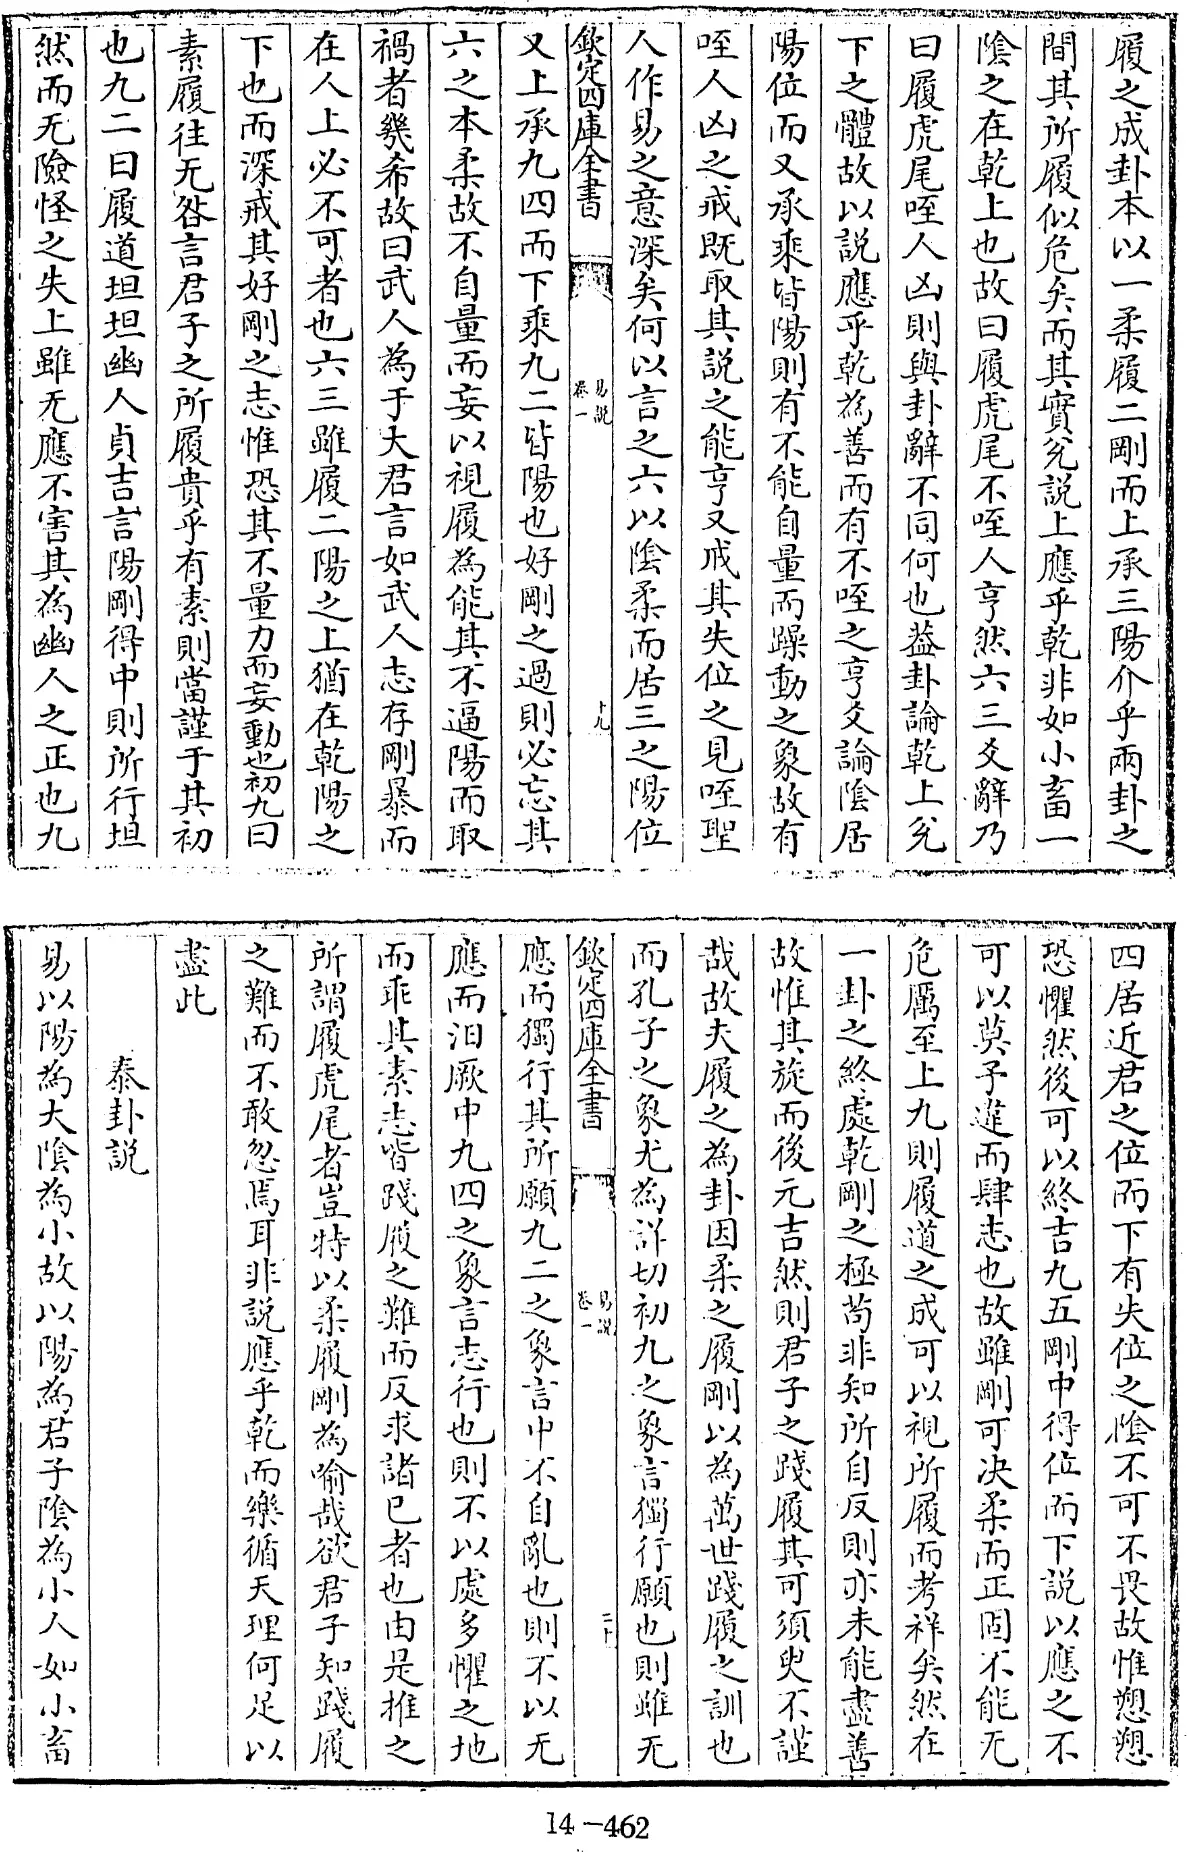 履之成卦本以一柔履二剛而上承三陽介乎兩卦之
間其所履似危矣而其實兊說上應乎乾非如小畜一
陰之在乾上也故曰履虎尾不咥人亨然六三爻辭乃
曰履虎尾咥人凶則與卦辭不同何也葢卦論乾上兊
下之體故以說應乎乾為善而有不咥之亨爻論陰居
陽位而又承乘皆陽則有不能自量而躁動之象故有
咥人凶之戒既取其說之能亨又戒其失位之見咥聖
人作易之意深矣何以言之六以陰柔而居三之陽位
欽定四庫全書
易說
卷一
十九
又上承九四而下乘九二皆陽也好剛之過則必忘其
六之本柔故不自量而妄以視履為能其不逼陽而取
禍者幾希故曰武人為于大君言如武人志存剛暴而
在人上必不可者也六三雖履二陽之上猶在乾陽之
下也而深戒其好剛之志惟恐其不量力而妄動也初九曰
素履往无咎言君子之所履貴乎有素則當謹于其初
也九二曰履道坦坦幽人貞吉言陽剛得中則所行坦
然而无險怪之失上雖无應不害其為幽人之正也九
四居近君之位而下有失位之陰不可不畏故惟愬愬
恐懼然後可以終吉九五剛中得位而下說以應之不
可以莫予違而肆志也故雖剛可决柔而正固不能无
危厲至上九則履道之成可以視所履而考祥矣然在
一卦之終處乾剛之極苟非知所自反則亦未能盡善
故惟其旋而後元吉然則君子之踐履其可須臾不謹
哉故夫履之為卦因柔之履剛以為萬世踐履之訓也
而孔子之象尤為詳切初九之象言獨行願也則雖无
欽定四庫全書
易說
卷一
二十
應而獨行其所願九二之象言中不自亂也則不以无
應而汩厥中九四之象言志行也則不以處多懼之地
而乖其素志皆踐履之難而反求諸己者也由是推之
所謂履虎尾者豈特以柔履剛為喻哉欲君子知踐履
之難而不敢忽焉耳非說應乎乾而樂循天理何足以
盡此
泰卦說
易以陽為大陰為小故以陽為君子陰為小人如小畜
14-462